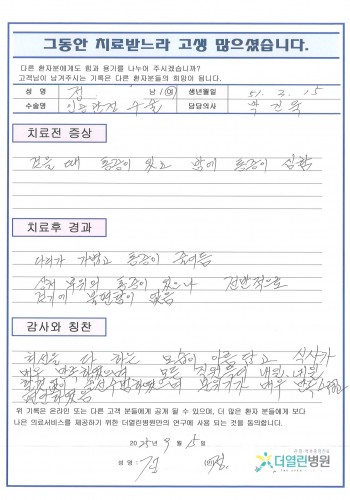 그동안 치료받느라 고생 많으셨습니다.
다른 환자분에게도 힘과 용기를 나누어 주시겠습니까?
고객님이 남겨주시는 기록은 다른 환자분들의 희망이 됩니다.
성 명 정 남 / 여 생년월일 51. 3. 15
수술명 인공관절 수술 담당의사 박건욱
치료전 증상
걸을 때 통증이 있고 밤에 통증이 심함
치료후 경과
다리가 가볍고 통증이 줄어듬
수술 부위의 통증이 있으나 전반적으로
걷기에 불편함이 없음
감사와 칭찬
최선을 다 하는 모습이 아름답고 식사가
매우 만족하였으며 모든 직원들이
매우
위 기록은 온라인 또는 다른 고객 분들에게 공개 될 수 있으며, 더 많은 환자 분들에게 보다
나은 의료서비스를 제공하기 위한 더열린병원만의 연구에 사용 되는 것을 동의합니다.
2025년 9월 15일
성 명 : 정
더열린병원